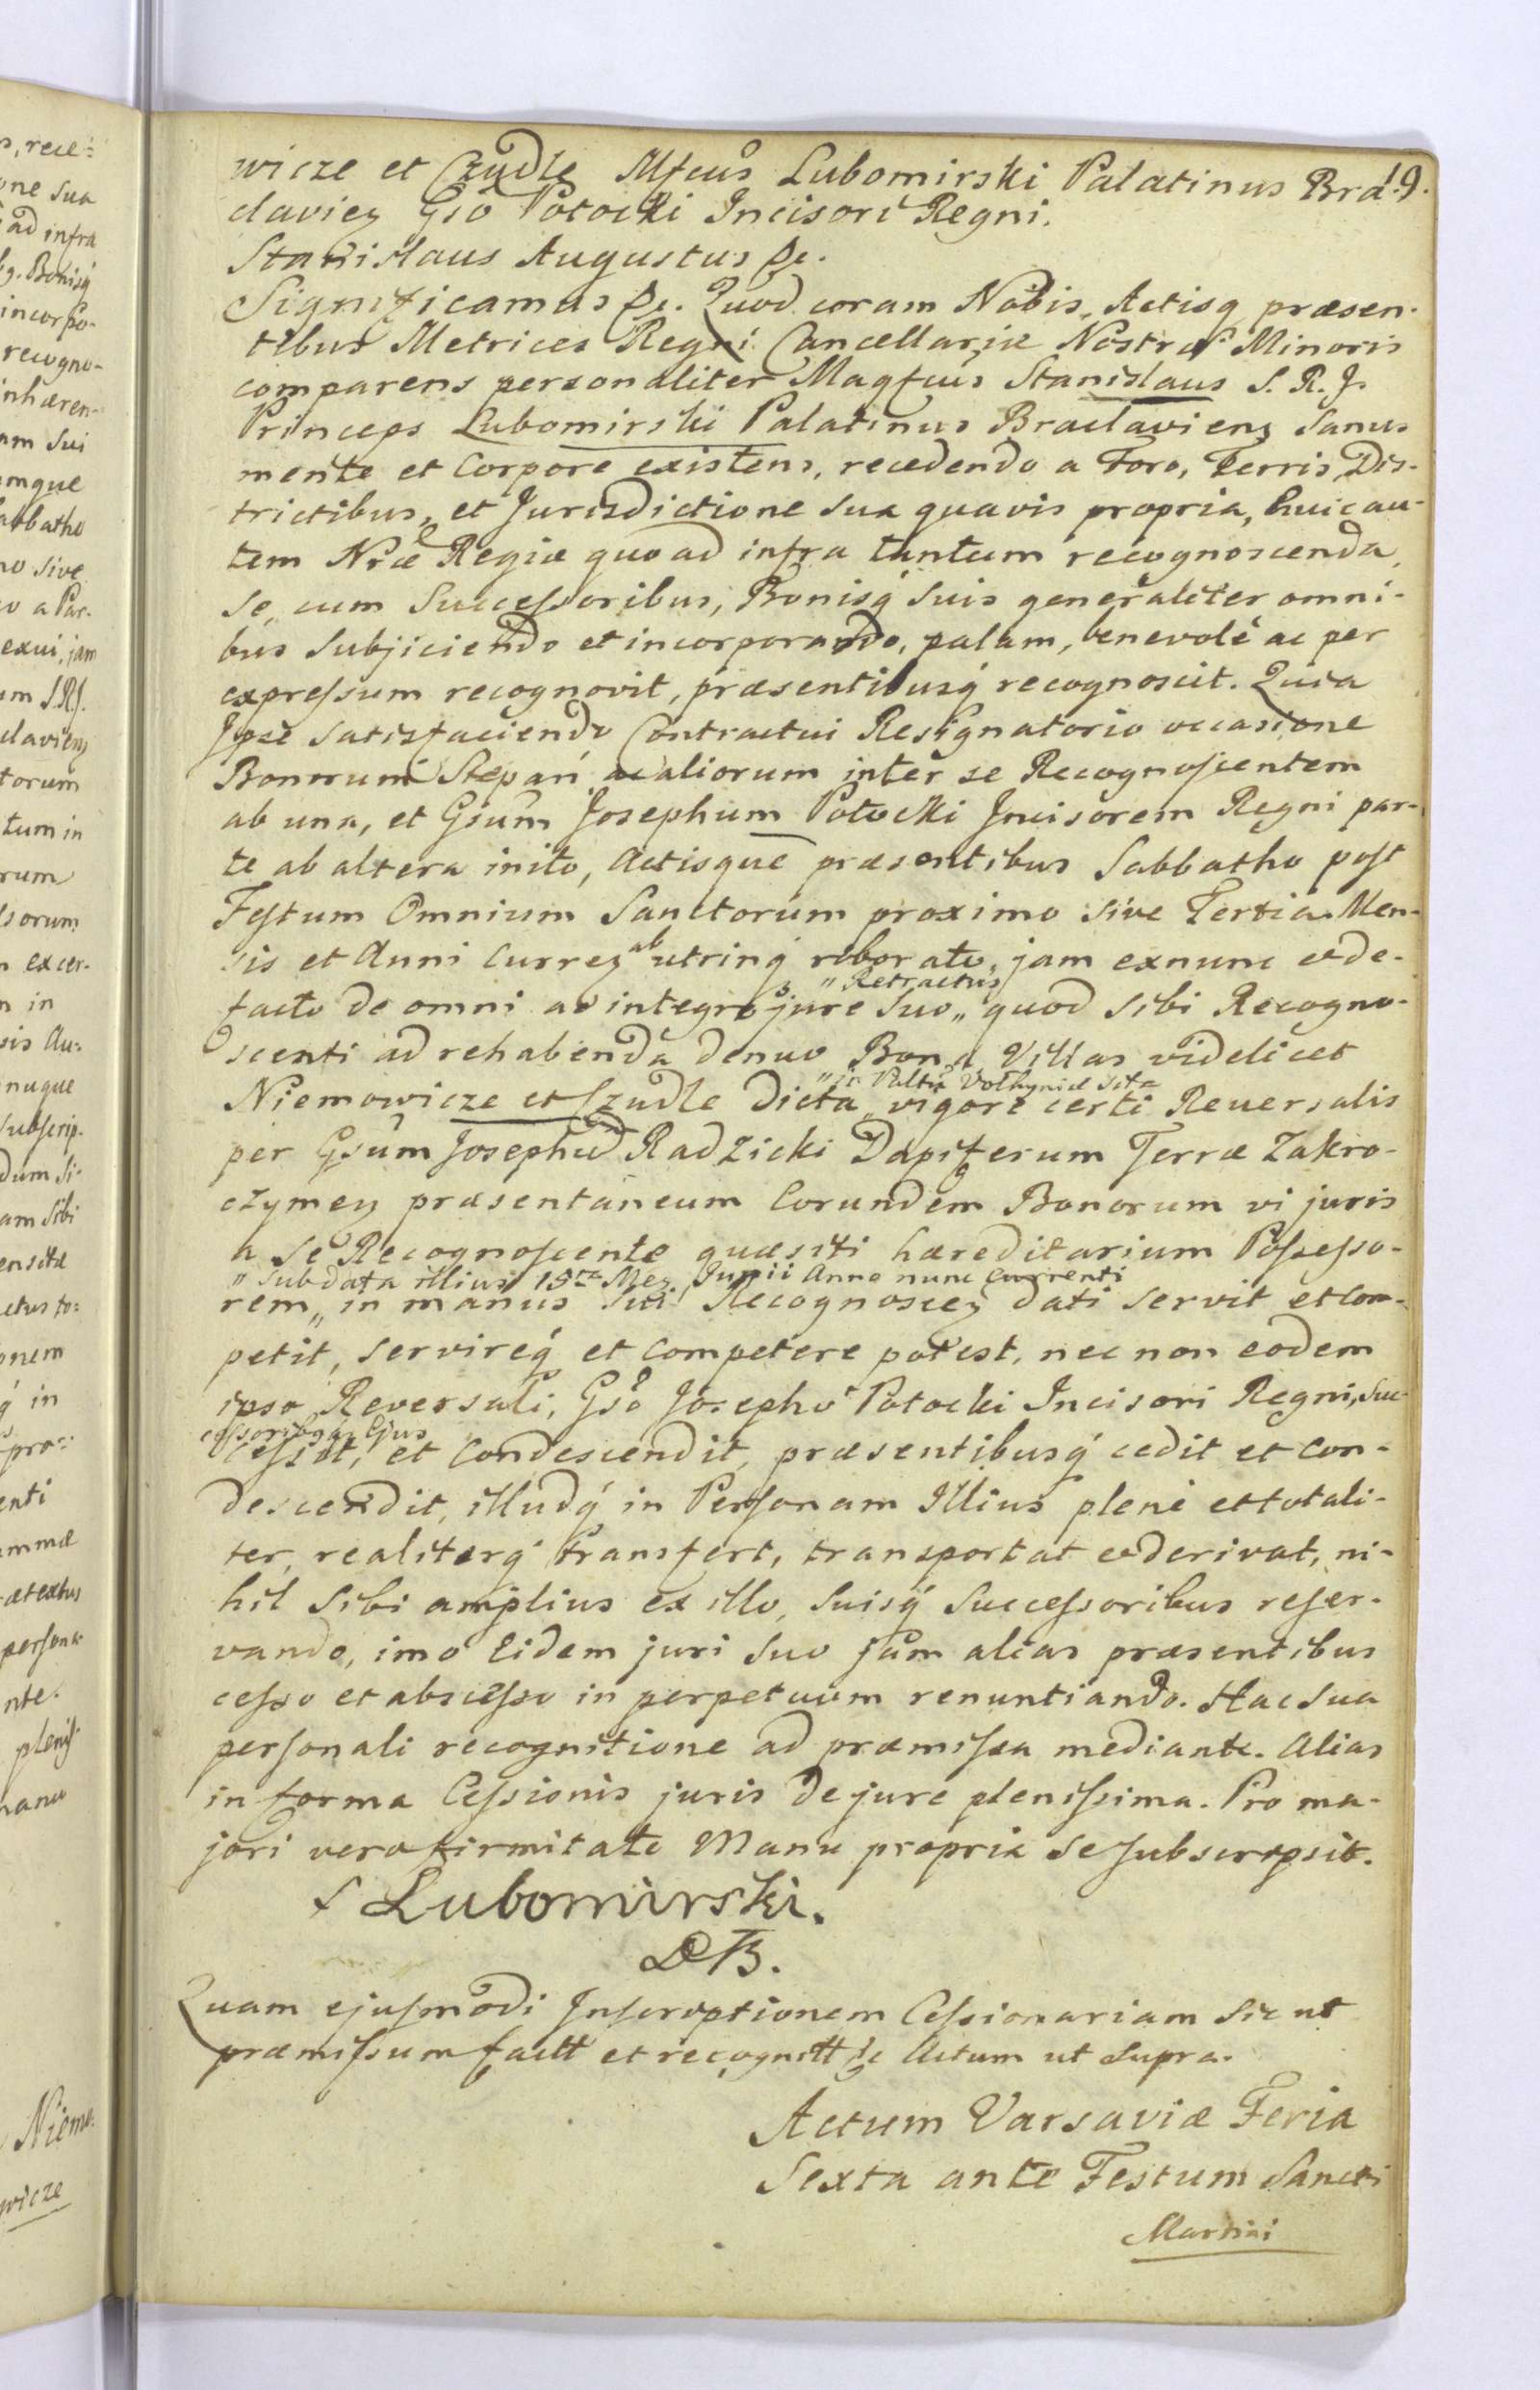 wicze et Czudle Mfcus Lubomirski Palatinus Bra- 9.
claviens Gso Potocki Incisori Regni.
Stanislaus Augustus &c.
Significamus &c. Quod coram Nobis, Actisq præsen-
tibus Metrices Regni Cancellariæ Nostræ Minoris
comparens personaliter Magfcus Stanislaus S. R. J.
Princeps Lubomirski Palatinus Braclaviens Sanus
mente et Corpore existens, recedendo a Foro, Terris, Dis-
trictibus, et Jurisdictione sua quavis propria, huic au-
tem Nræ Regiæ quo ad infra tantum recognoscenda,
Se, cum Successoribus, Bonisq suis generaliter omni-
bus subjiciendo et incorporando, palam, benevolè ac per
expressum recognovit, præsentibusq recognoscit. Quia
Ipse satisfaciendo Contractui Resignatorio occasione
Bonorum Stepań ac aliorum inter se Recognoscentem
ab una, et Gsum Josephum Potocki Incisorem Regni par-
te ab altera inito, Actisque præsentibus Sabbatho post
Festum Omnium Sanctorum proximo sive Tertia Men-
sis et Anni Currens ab utrinq roborato, jam exnunc et de-
facto de omni ac integro jure suo „ quod sibi Recogno-
„ Retractus
scenti ad rehabenda denuo Bona Villas videlicet
Niemowicze et Czudle dicta „ vigore certi Reversalis
„ in Paltu Volhyniæ sita
per Gsum Josephum Radzicki Dapiferum Terræ Zakro-
czymens præsentaneum Eorundem Bonorum vi juris
a Se Recognoscente quæsiti hæreditarium Possesso-
„ sub data illius 15ta Mens Junii Anno nunc Currenti
rem „ in manus sui Recognoscens dati servit et com-
petit, servireq et competere potest, nec non eodem
ipso Reversali, Gso Josepho Potocki Incisori Regni, Suc-
cessoribusq Ejus
cessit, et Condescendit, præsentibusq cedit et con-
descendit, illudq in Personam Illius plenè et totali-
ter, realiterq transfert, transportat et derivat, ni-
hil sibi amplius ex illo, suisq Successoribus reser-
vando, imò Eidem juri suo jam alias præsentibus
cesso et abscesso in perpetuum renuntiando. Hac sua
personali recognitione ad præmissa mediante. Alias
in forma Cessionis juris de jure plenissima. Pro ma-
jori vero firmitate Manu propria se subscripsit.
S Lubomirski.
Quam ejusmodi Inscriptionem Cessionariam sic ut
præmissum factt et recognitt &c Actum ut supra.
Actum Varsaviæ Feria
Sexta ante Festum Sancti
Martini